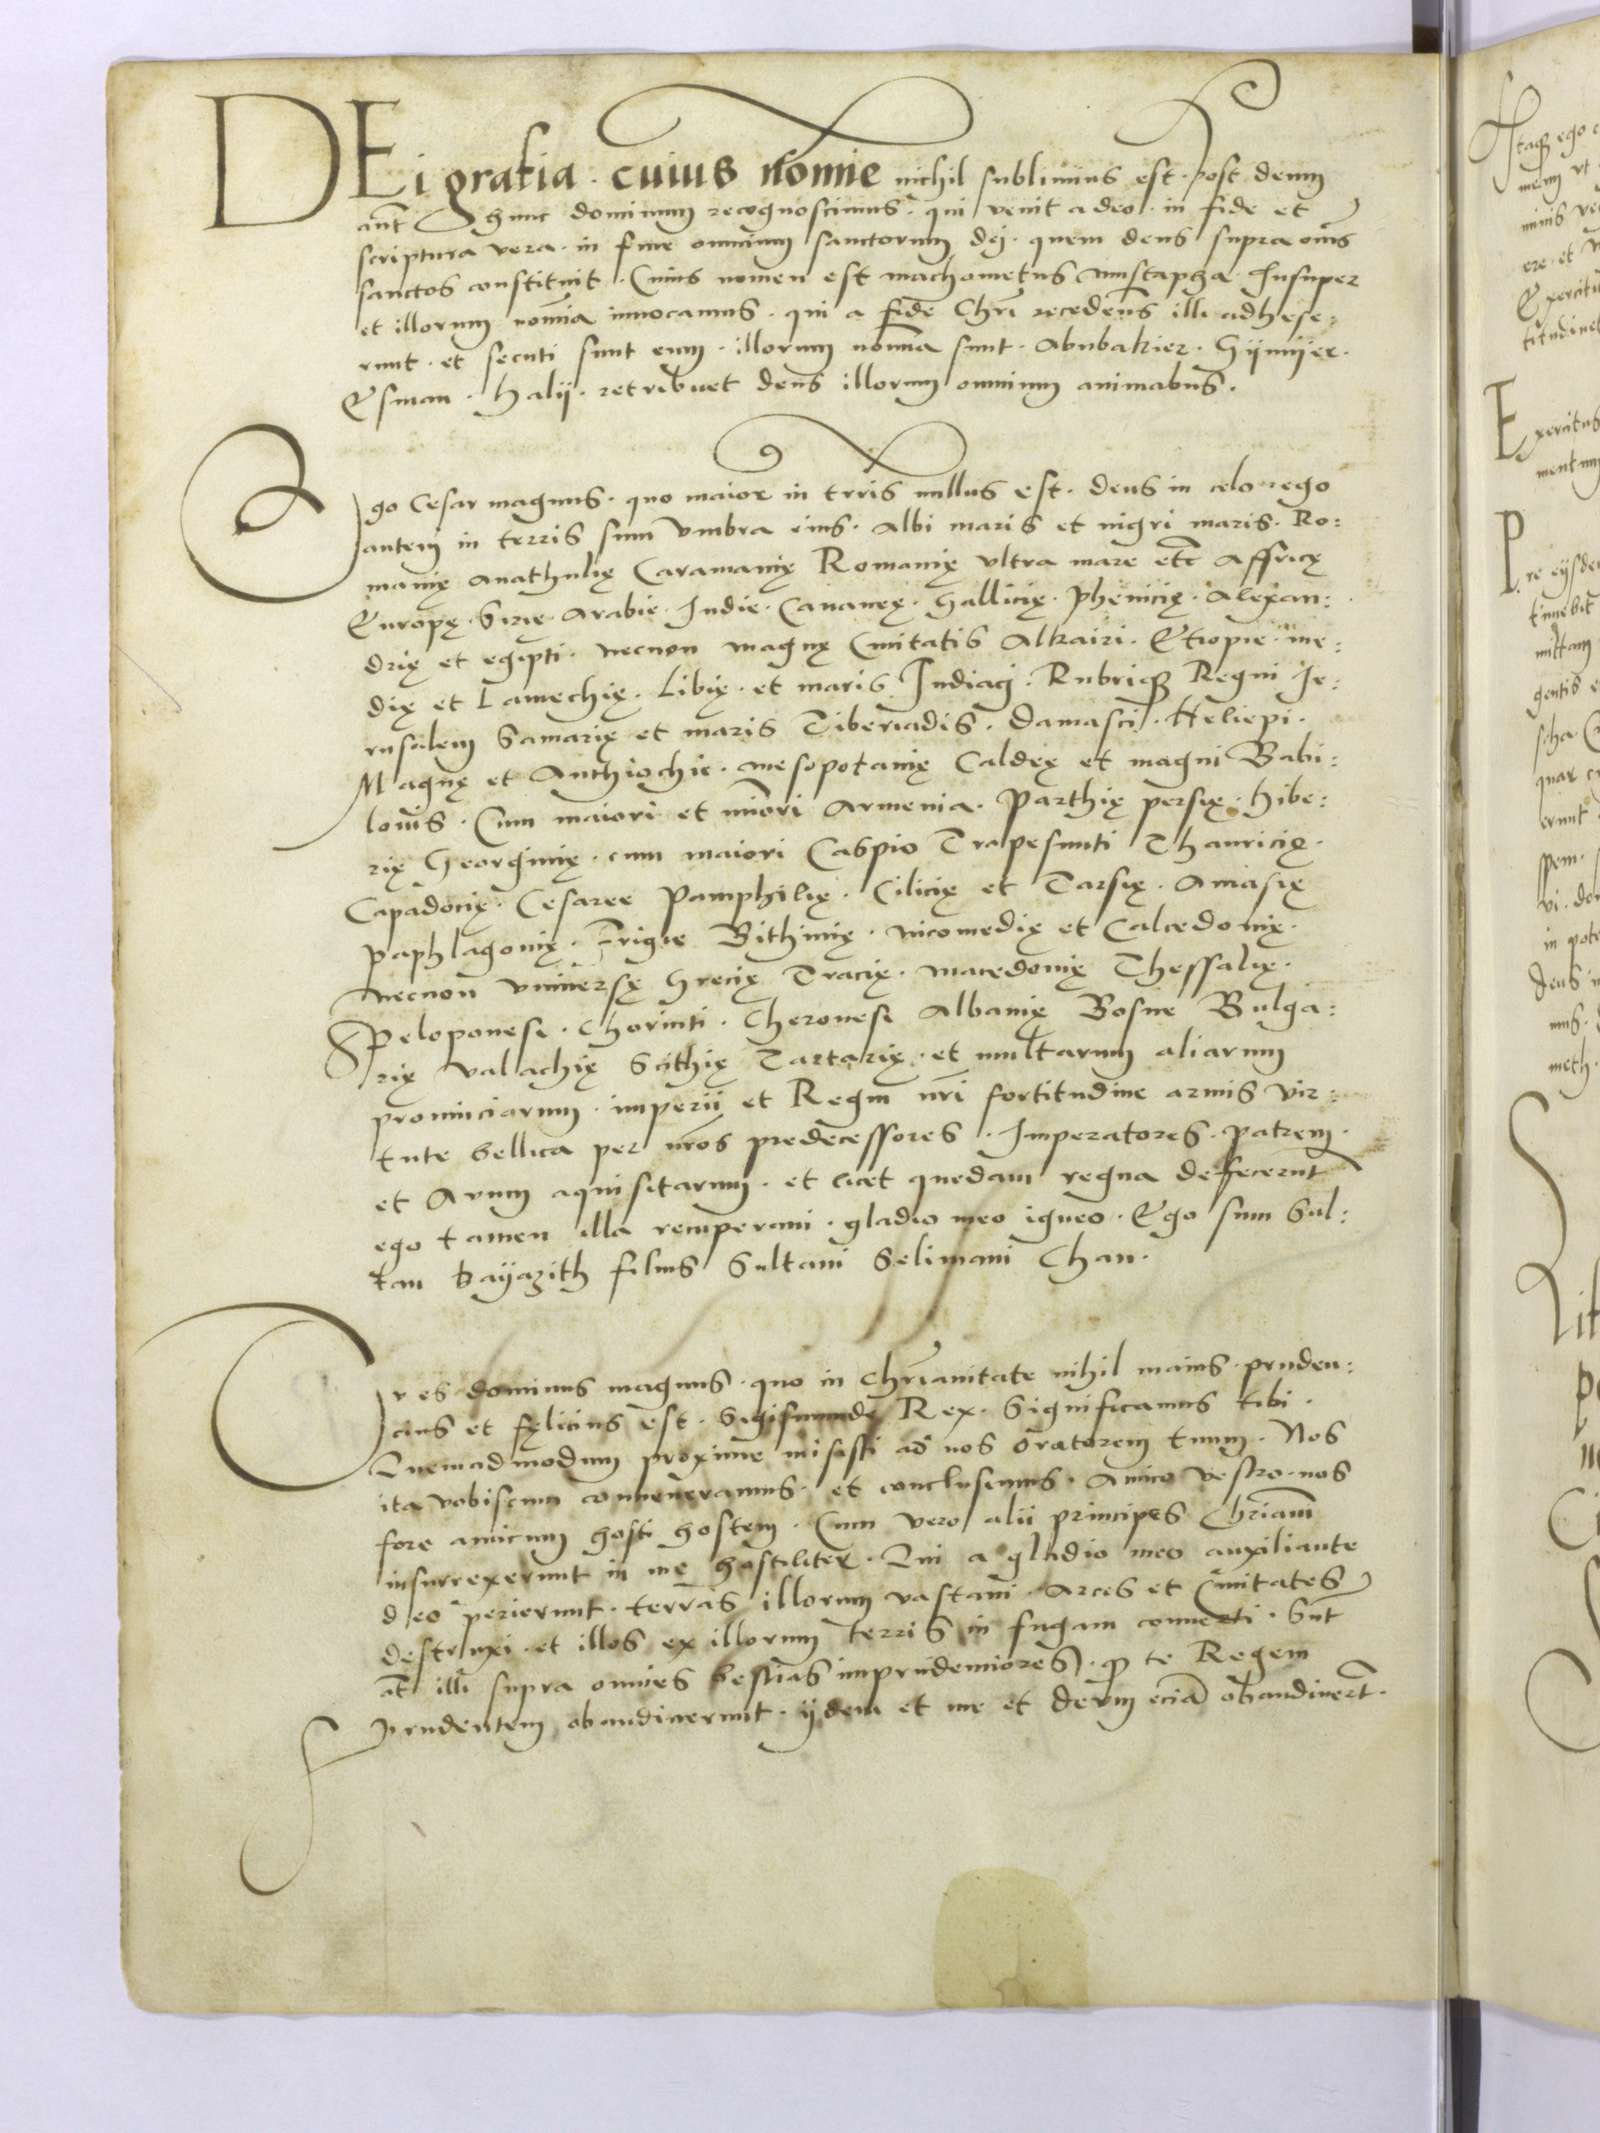 DEi gratia · cuius nomīe nichil sublimius est · post deum
aūt hunc dominum recognoscimus · qui venit a deo · in fide et
scriptura vera · in fine omnium sanctorum dej · quem deus supra oīms
sanctos constituit · Cuius nomen est machometus mustapha · Insuper
et illorum nomīa innocamus · qui a fide Chrī recedens illi adhese:
runt · et secuti sunt eum · illorum nomīa sunt · Abubakier · Hijmijer ·
Esman · Halij · retribuet deus illorum omnium animabus ·
Ego Cesar magnus · quo maior in trris nullus est · deus in celo · ego
autem in terris sum vmbra eius · Albi maris et nigri maris · Ro:
manię anathulię Caramanię Romanię vltra mare etc̄ Affricę
Europę · Sirię · Arabie · Indie · Cananeę · Gallicię · Phenicię · Alexan:
drię et egipti · necnon magnę Ciuitatis Alkairi · Etiopie · me:
dię et Lamechię · Libię · et maris Indiaci · Rubriq3 Regni Je:
rusalem Samarię et maris Tiberiadis · Damasci · Heliepi ·
Magnę et Anthiochie · mesopotamię Caldeę et magni Babi:
lonīs · Cum maiori et minori Armenia · Parthię persię · hibe:
rię Georginię · cum maiori Caspio Trapesunti Thauricię ·
Capadocię · Cesaree Pamphilię · Cilicię et Tarsię · Amasię
paphlagonię · Frigie Bithinię · nicomedię et Calcedonię ·
necnon vniuersę Grecię Tracię · macedonię Thessalię ·
Peloponesi · Chorinti · Cheronesi Albanię Bosne Bulga:
rię Valachię Scithię Tartarię · et multarum aliarum
prouinciarum · imperii et Regni nrī fortitudine armis vir:
tute bellica per nrōs predecessores · Imperatores · patrem ·
et Auum aquisitarum · et licet quedam regna deffecerūt
ego tamen illa recuperaui · gladio meo igneo · Ego sum Sul:
tan Bayazith filius Sultani Selimani Chan ·
Tu es dominus magnus · quo in Chrīanitate nihil maius · pruden:
cius et fęlicius est · Sigismunde Rex · Significamus tibi ·
Quemadmodum proxime misisti ad nos oratorem tuum · Nos
ita vobiscum conueneramus · et conclusimus · Amico vestro · nos
fore amicum hosti hostem · Cum vero alii principes Chrīani
insurrexerunt in me hostiliter · Qui a gladio meo auxiliante
deo perierunt · terras illorum vastaui · Arces et Ciuitates
destruxi · et illos ex illorum terris in fugam conuerti · Sūt
āt illi supra omnes bestias imprudentiores · q3 te Regem
prudentem obaudiuerunt · ijdem et me et deum eciā obaudiuerūt ·